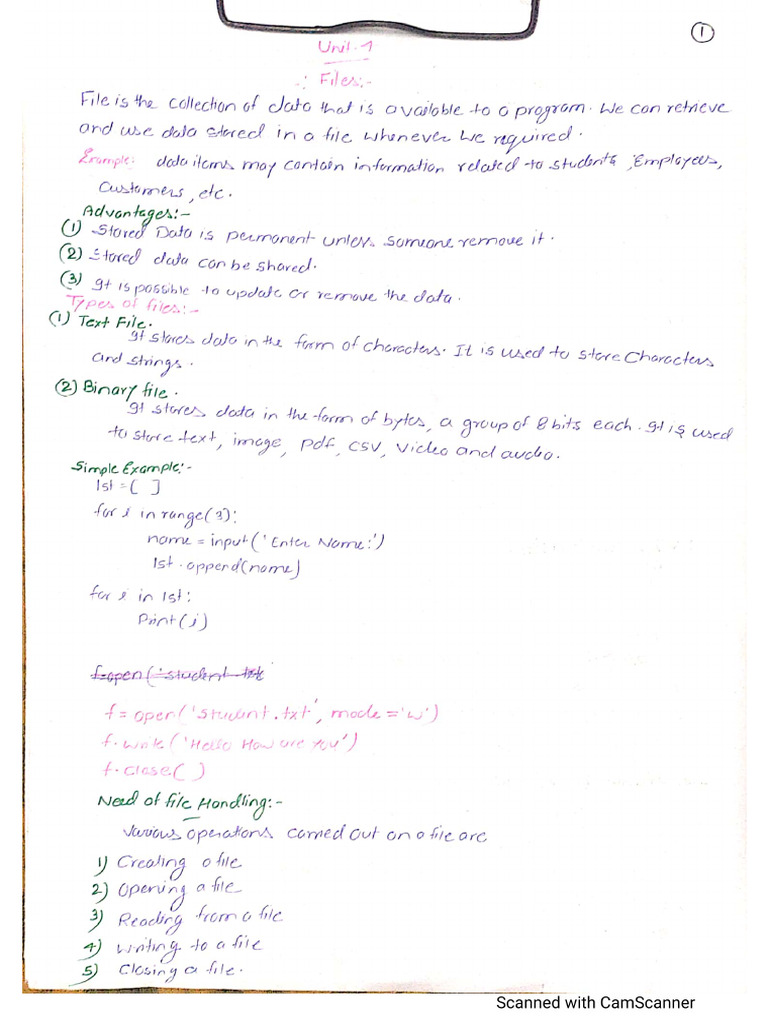 1
Unit-1
Files:-
File is the collection of data that is available to a program. We can retrieve
and use data stored in a file whenever we required.
Example: data items may contain information related to students, Employees,
Customers, etc.
Advantages:-
(1) Stored Data is permanent unless someone remove it.
(2) Stored data can be shared.
(3) It is possible to update or remove the data.
Types of files:-
(1) Text File.
It stores data in the form of characters. It is used to store Characters
and strings.
(2) Binary file.
It stores data in the form of bytes, a group of 8 bits each. It is used
to store text, image, pdf, csv, video and audio.
Simple Example:-
lst = [ ]
for i in range(3):
name = input('Enter Name:')
lst.append(name)
for i in lst:
Print(i)
f=open('student.txt
f = open('student.txt', mode='w')
f.write('Hello How are You')
f.close( )
Need of file Handling:-
Various operations carried out on a file are
1) Creating a file
2) Opening a file
3) Reading from a file
4) Writing to a file
5) Closing a file.
Scanned with CamScanner